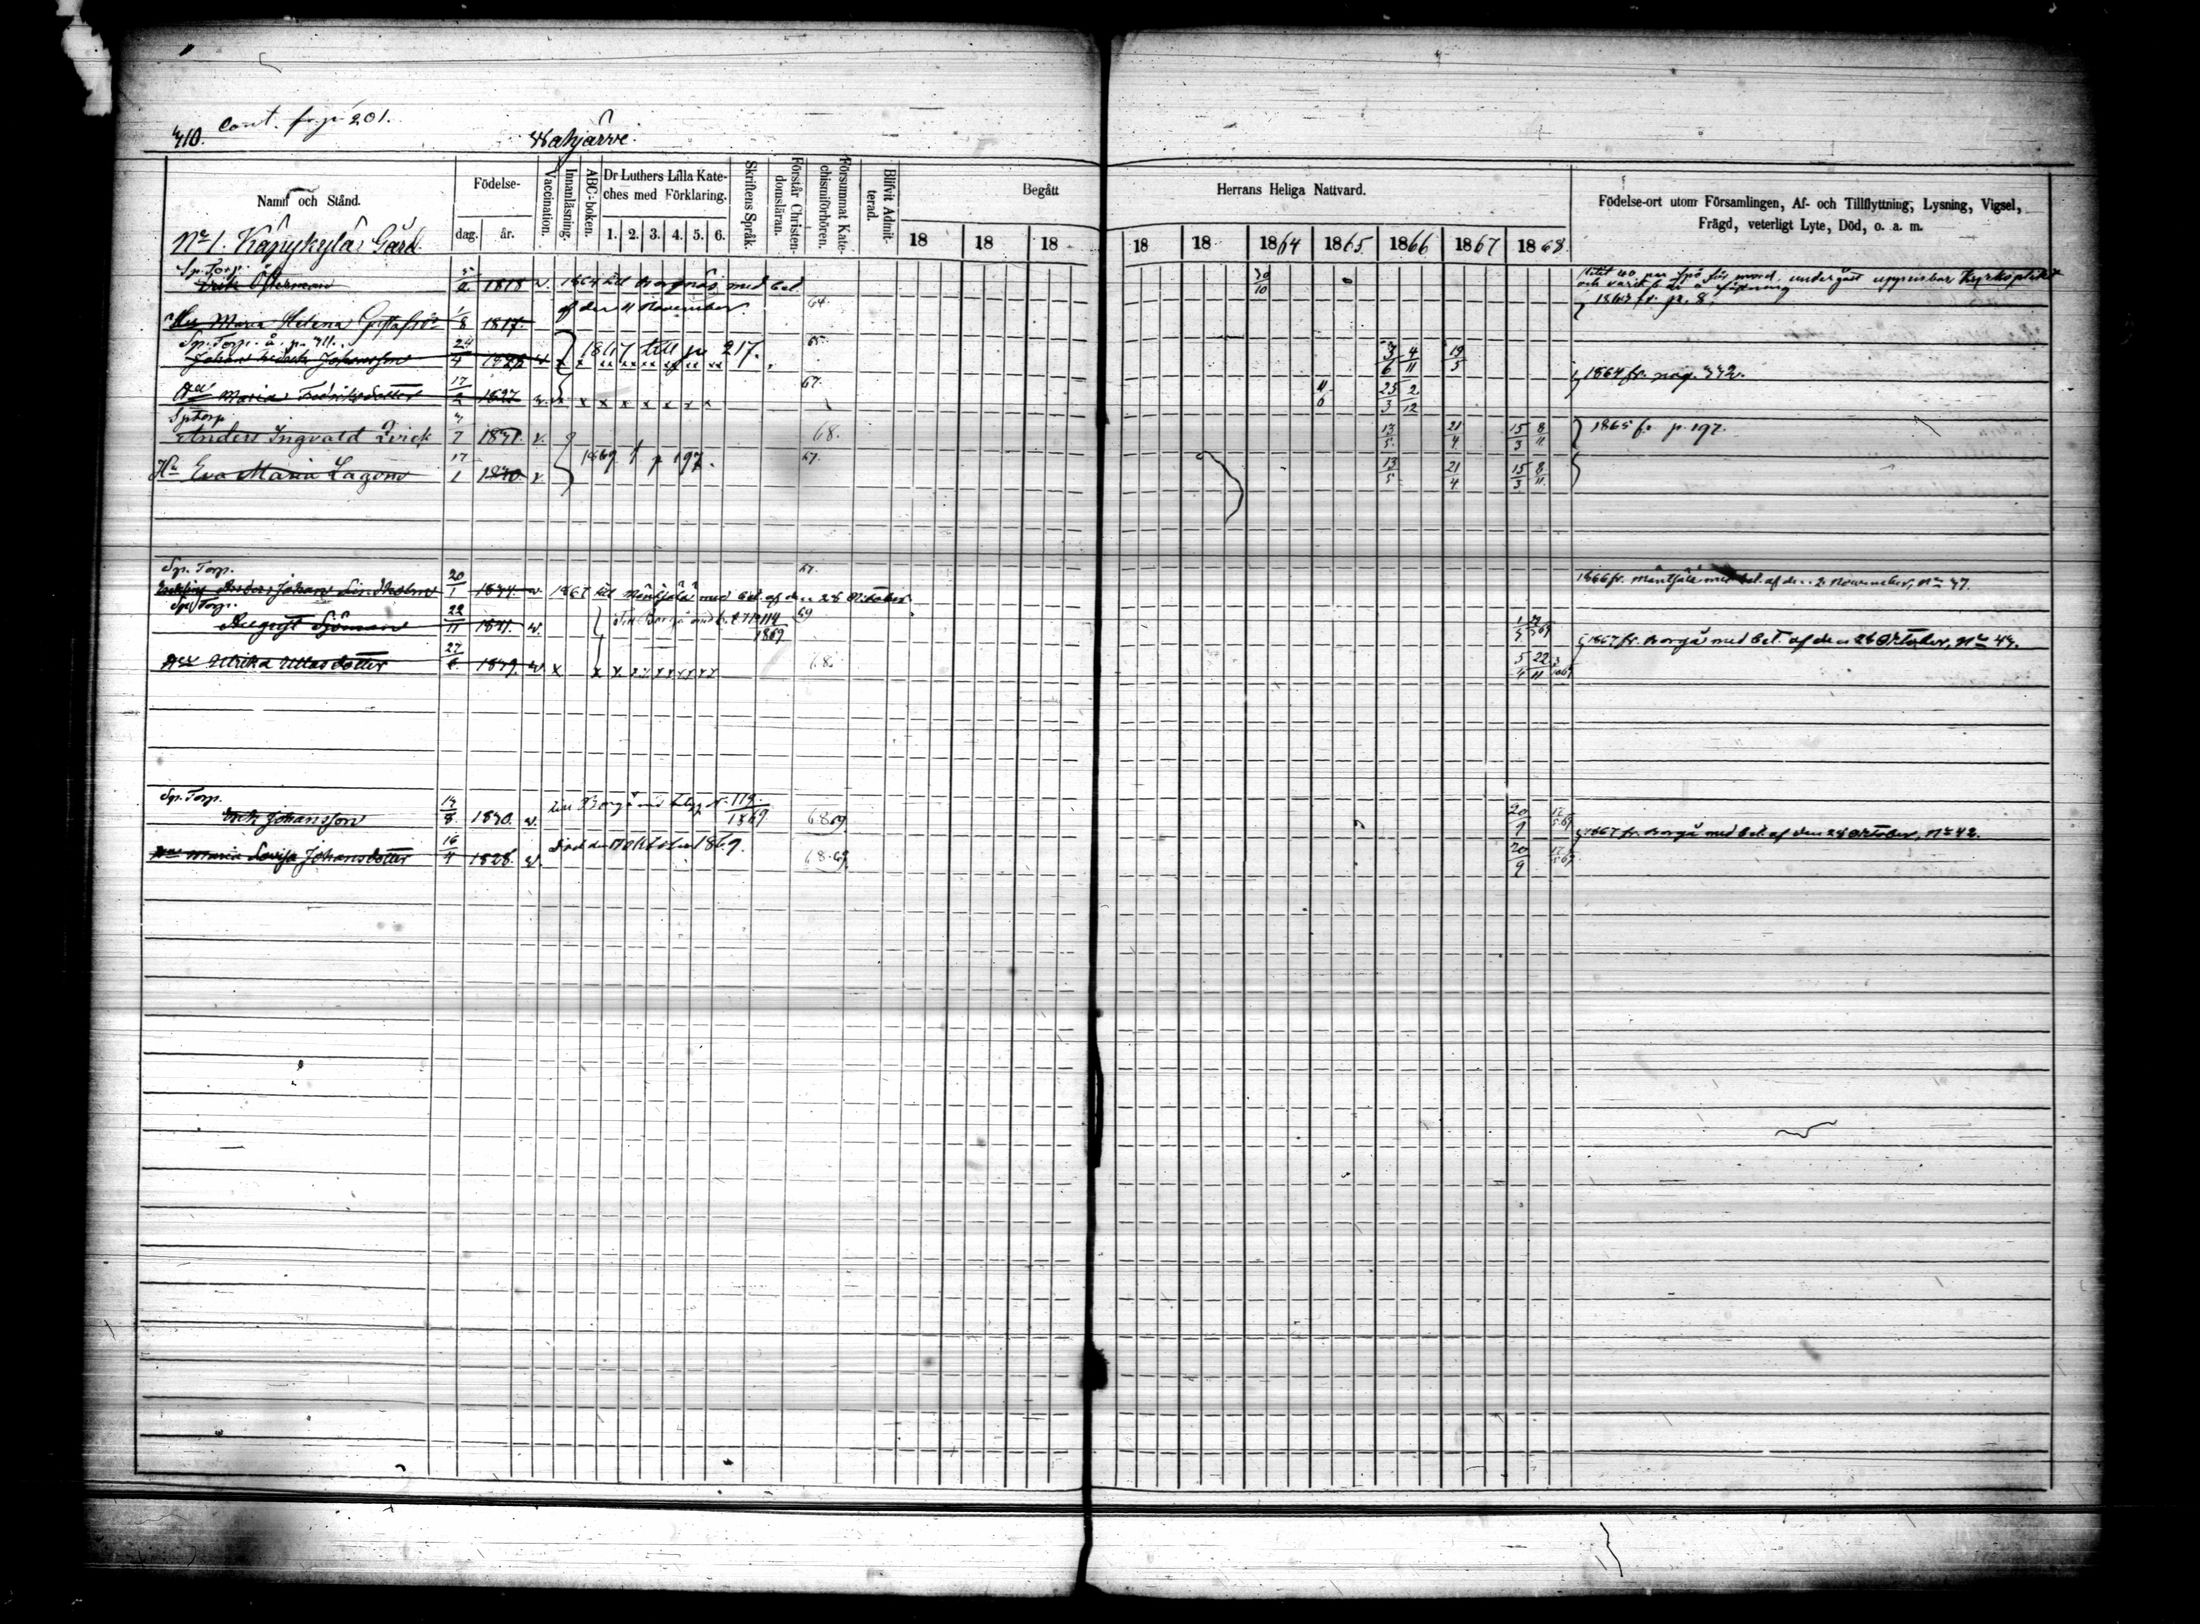 410. Cont. fr. p. 201.
Wahjärvi.
Namn och Stånd.
Födelse-
dag. år.
Vaccination.
Innanläsning.
ABC-boken.
Dr Luthers Lilla Kate-
ches med Förklaring.
1. 2. 3. 4. 5. 6.
Skriftens Språk.
Förstår Christen-
domsläran.
Försummat Kate-
chismiförhören.
Blifvit Admit-
terad.
Begått
18 18 18
Herrans Heliga Nattvard.
18 18 1864 1865 1866 1867 1868.
Födelse-ort utom Församlingen, Af- och Tillflyttning, Lysning, Vigsel,
Frägd, veterligt Lyte, Död, o. a. m.
No 1. Käpykylä Gård
Sp. Torp.
Erik Österman 5/2 1818 v. 1864 till Borgnäs med bet. 30/10
undergått uppenbar Kyrkoplikt
af den 11 November. 64.
1863 fr. p. 8.
Hu Maria Helena Gustafsdr 1/8 1817.
Sp. Torp. å p. 411. 65.
Johan Fredrik Johansson 24/4 1867 till p. 217. 4/11 19/5
1864 fr. pag. 442.
Hu Maria Fredriksdotter 17/2 1827 v. x x x x x x x x 67. 11/6 25/3 2/12
Sp Torp
Anders Ingvald Qvick 1841. v. 68. 13/5 21/4 15/3 8/11
1865 fr p. 197.
Hu Eva Maria Lagom 17/1 1840 v. 1869 t p 197. 67. 13/5 21/4 15/3 8/11
Sp. Torp. 67.
Anders Johan Lindholm 20/1 1844. v. 1867 till Mäntsälä med bet. af den 28 Oktober
1866 fr. Mäntsälä med bet. af den 2 November, No 47.
Sp. Torp.
August Sjöman 22/11 1841. v. Till Borgå 1869 69
1867 fr. Borgå med bet. af den 28 Oktober, No 44.
Hu Ulrika Ullasdotter 27/6 1849. v. x x x 68. 5/4 22/11
Sp. Torp.
Erik Johansson 14/8 1840. v. till Borgå med betyg N. 119/1869 68 69 20/9
1867 fr. Borgå med bet. af den 28 Oktober, No 42.
Hu Maria Lovisa Johansdotter 16/4 1828. v. död den 17 Oktober 1869. 68. 69. 20/9